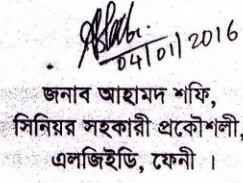 04/01/2016
জনাব আহাম্মদ শফি,
সিনিয়র সহকারী প্রকৌশলী,
এলজিইডি, ফেনী ।